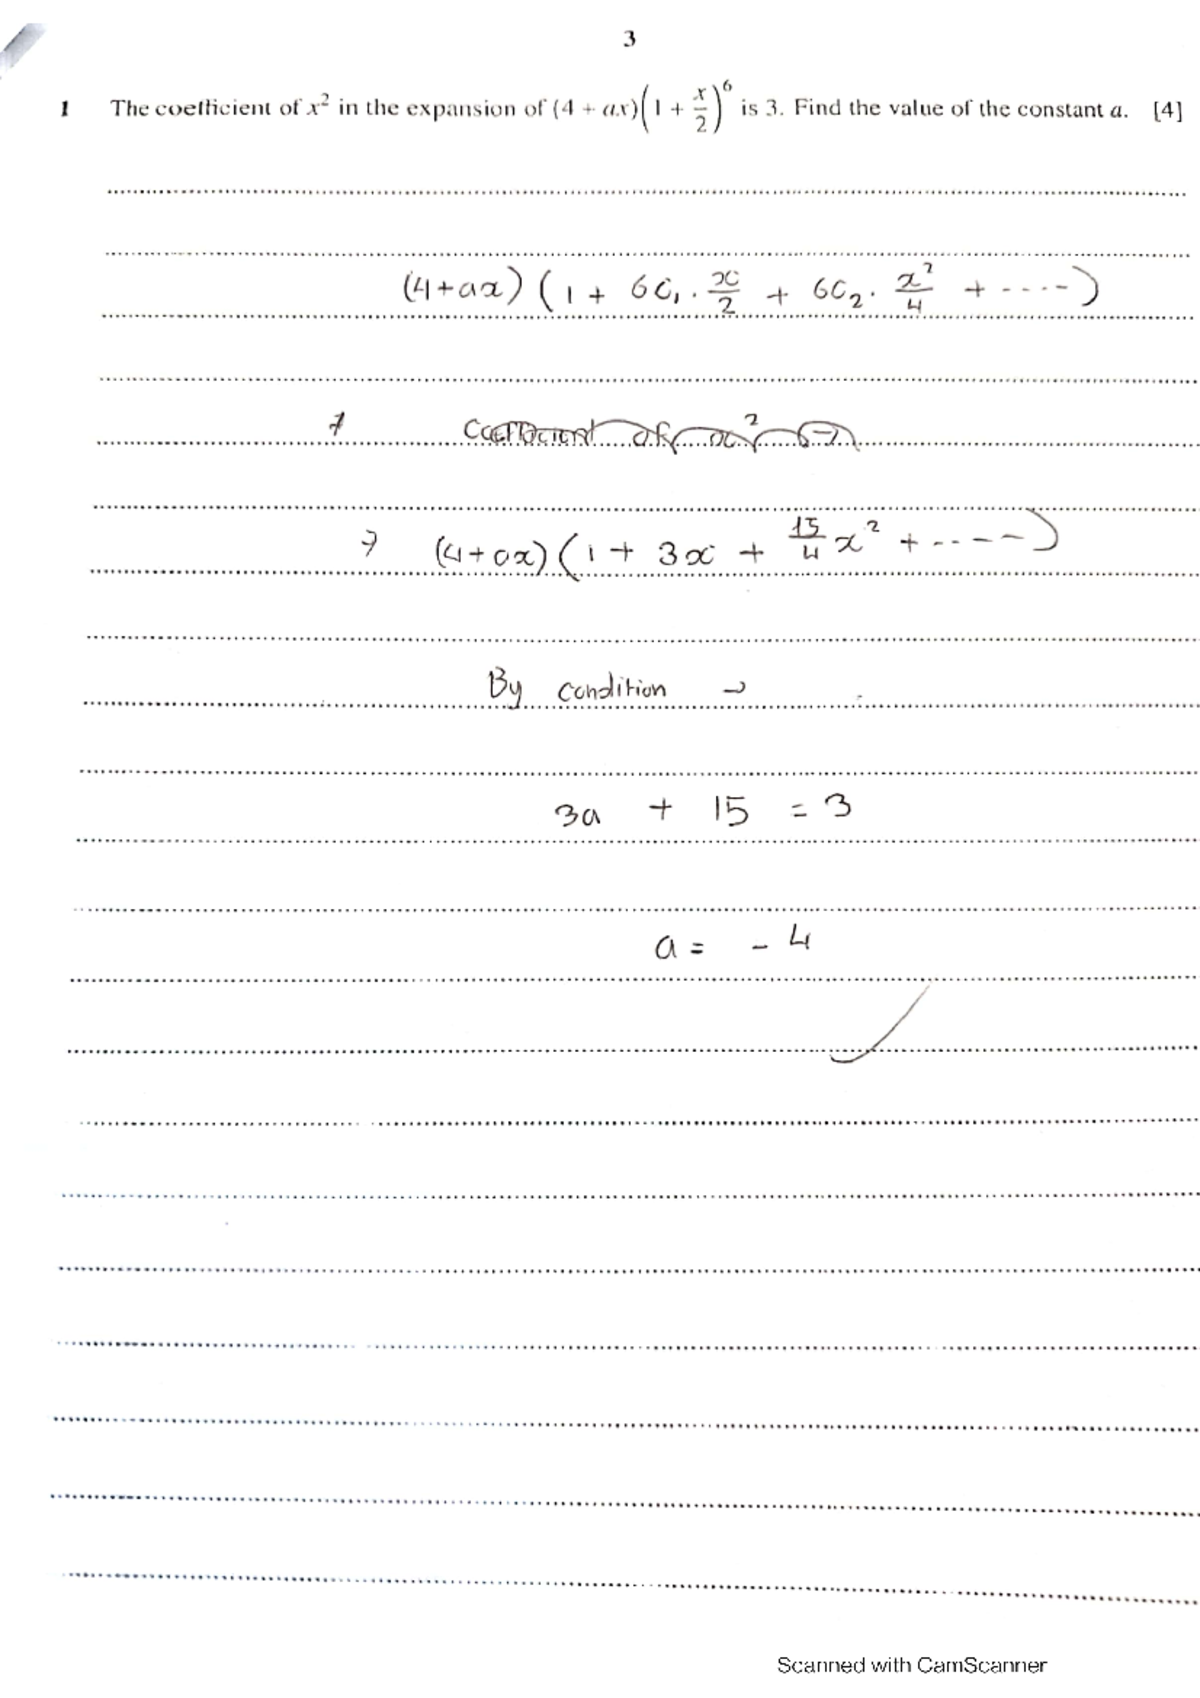 3
1 The coefficient of x² in the expansion of (4 + ax)(1 + x/2)⁶ is 3. Find the value of the constant a. [4]
(4+ax) (1 + 6C₁ . x/2 + 6C₂ . x²/4 + ....)
Coefficient of x² →
→ (4+ax) (1 + 3x + 15/4 x² + ....)
By condition →
3a + 15 = 3
a = - 4
Scanned with CamScanner